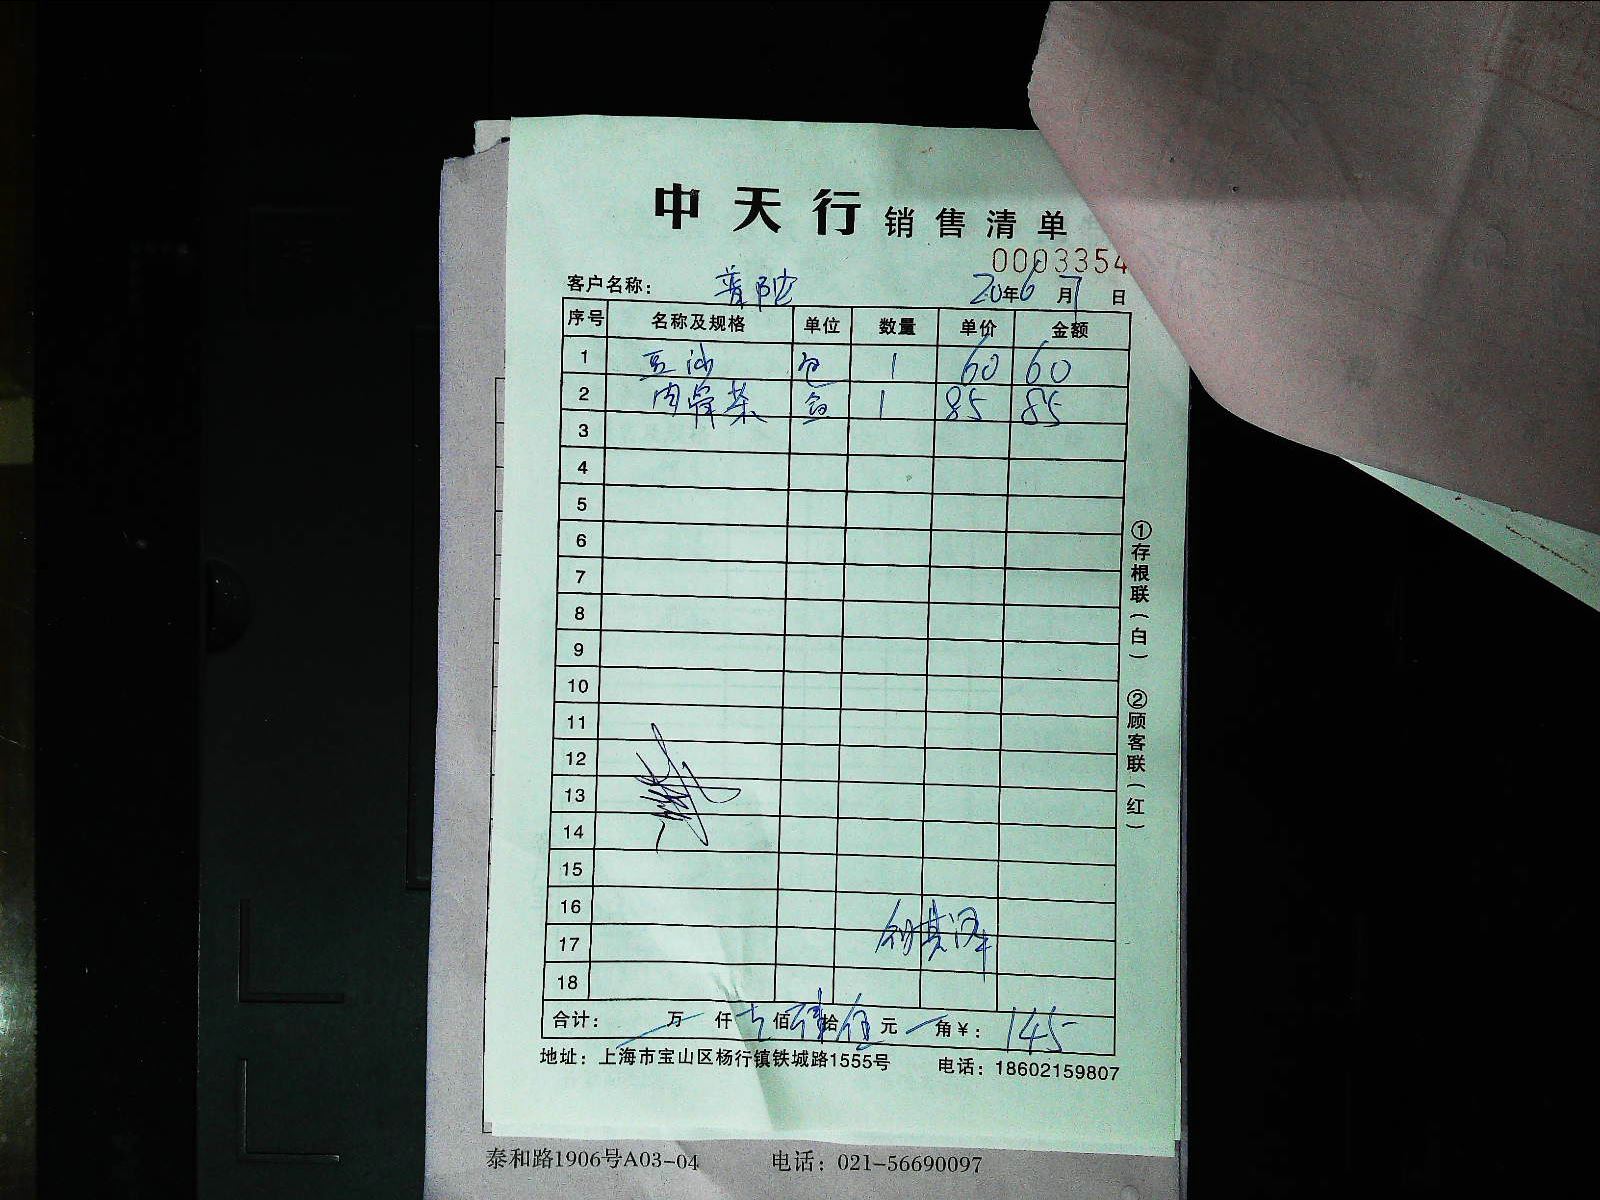 中天行 销售清单
0003354
客户名称： 普陀 20年6月7日
序号 名称及规格 单位 数量 单价 金额
1 豆油 包 1 60 60
2 肉骨茶 盒 1 85 85
3
4
5
6
7
8
9
10
11
12
13
14
15
16
17
18
合计： 万 仟 佰 拾 伍 元 角 ￥： 145
地址：上海市宝山区杨行镇铁城路1555号 电话：18602159807
①存根联（白） ②顾客联（红）
泰和路1906号A03-04 电话：021-56690097